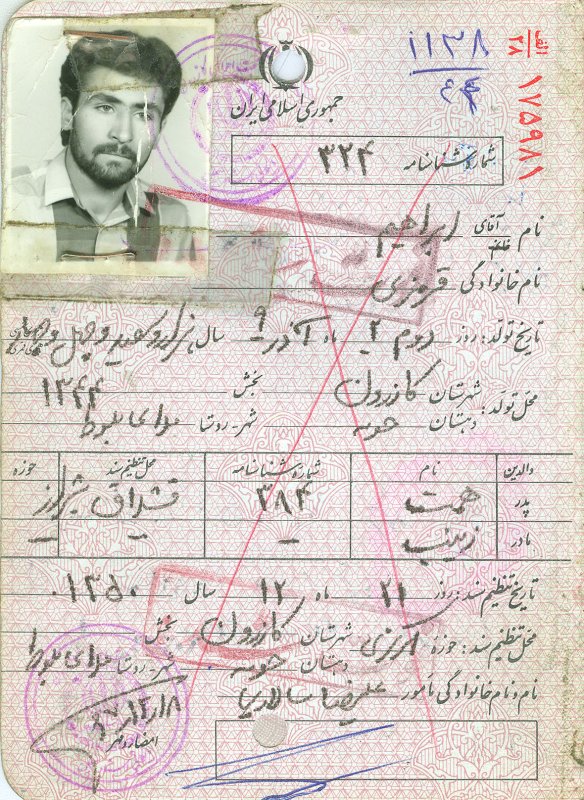 الف
۲۸
۱۷۵۹۸۱
۱۱۳۸
۴۴
جمهوری اسلامی ایران
شماره شناسنامه ۳۲۴
نام آقای خانم ابراهیم
نام خانوادگی
تاریخ تولد: روز دوم ۲ ماه آذر ۹ سال هزار و سیصد و چهل و چهار
۱۳۴۴
محل تولد: شهرستان کازرون بخش
دهستان حومه شهر-روستا
والدین نام شماره شناسنامه محل تنظیم سند حوزه
پدر همت ۳۸۴ قشلاق شیراز
مادر زینب - - -
تاریخ تنظیم سند: روز ۲۱ ماه ۱۲ سال ۱۳۵۰
محل تنظیم سند: حوزه مرکزی شهرستان کازرون بخش
دهستان حومه شهر-روستا
نام و نام خانوادگی مأمور علیرضا سالاری
امضاء و مهر